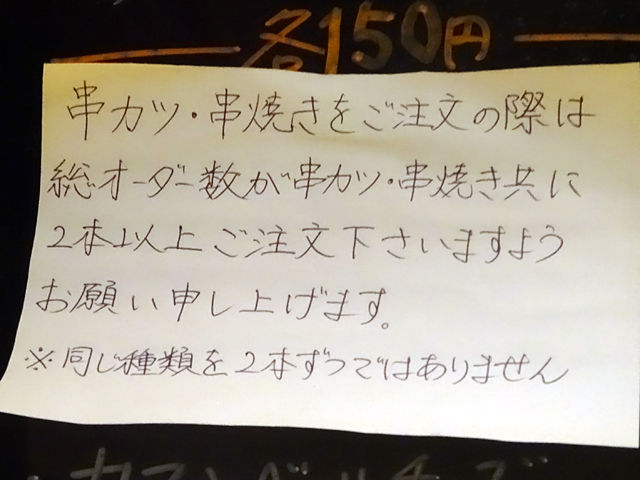 各150円
串カツ・串焼きをご注文の際は
総オーダー数が串カツ・串焼き共に
2本以上ご注文下さいますよう
お願い申し上げます。
※同じ種類を2本ずつではありません